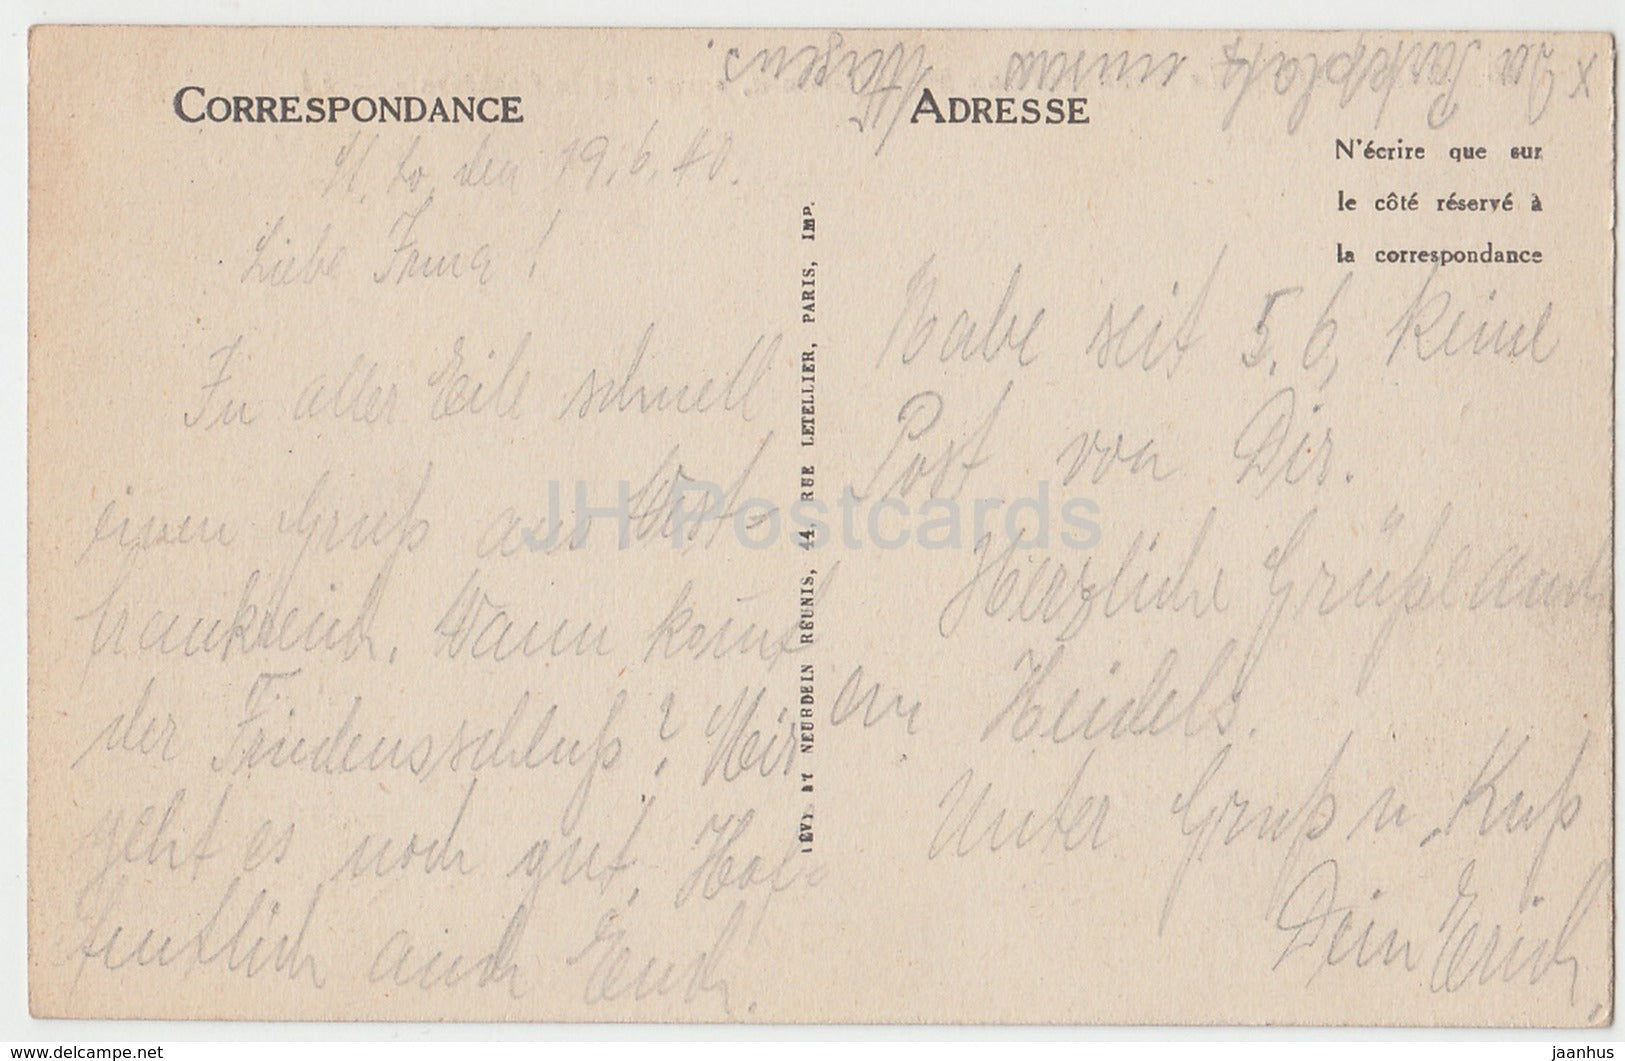 x Da Parkplatz unseres Wagens.
CORRESPONDANCE
den 19.6.40.
Liebe Irma!
In aller Eile schnell
einen Gruß aus West-
frankreich. Wann kommt
der Friedensschluß? Mir
geht es noch gut. Hof-
fentlich auch Euch.
LÉVY ET NEURDEIN RÉUNIS, 44, RUE LETELLIER, PARIS, IMP.
ADRESSE
N'écrire que sur
le côté réservé à
la correspondance
Habe seit 5.6. keine
Post von Dir.
Herzliche Grüße auch
an Heidels.
Unter Gruß u. Kuß
Dein Erich.
JH Postcards
www.delcampe.net
jaanhus